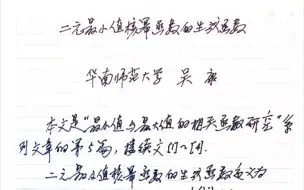 二元最小值核幂函数的生成函数
华南师范大学 吴康
本文是“最小值与最大值的相关函数研究”系
列文章的第5篇,接续文[1]~[4].
二元最小值核幂函数的生成函数定义为